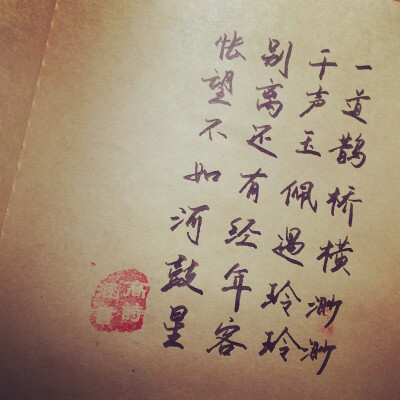 一道鹊桥横渺渺
千声玉佩過玲玲
别离还有经年客
怅望不如河鼓星